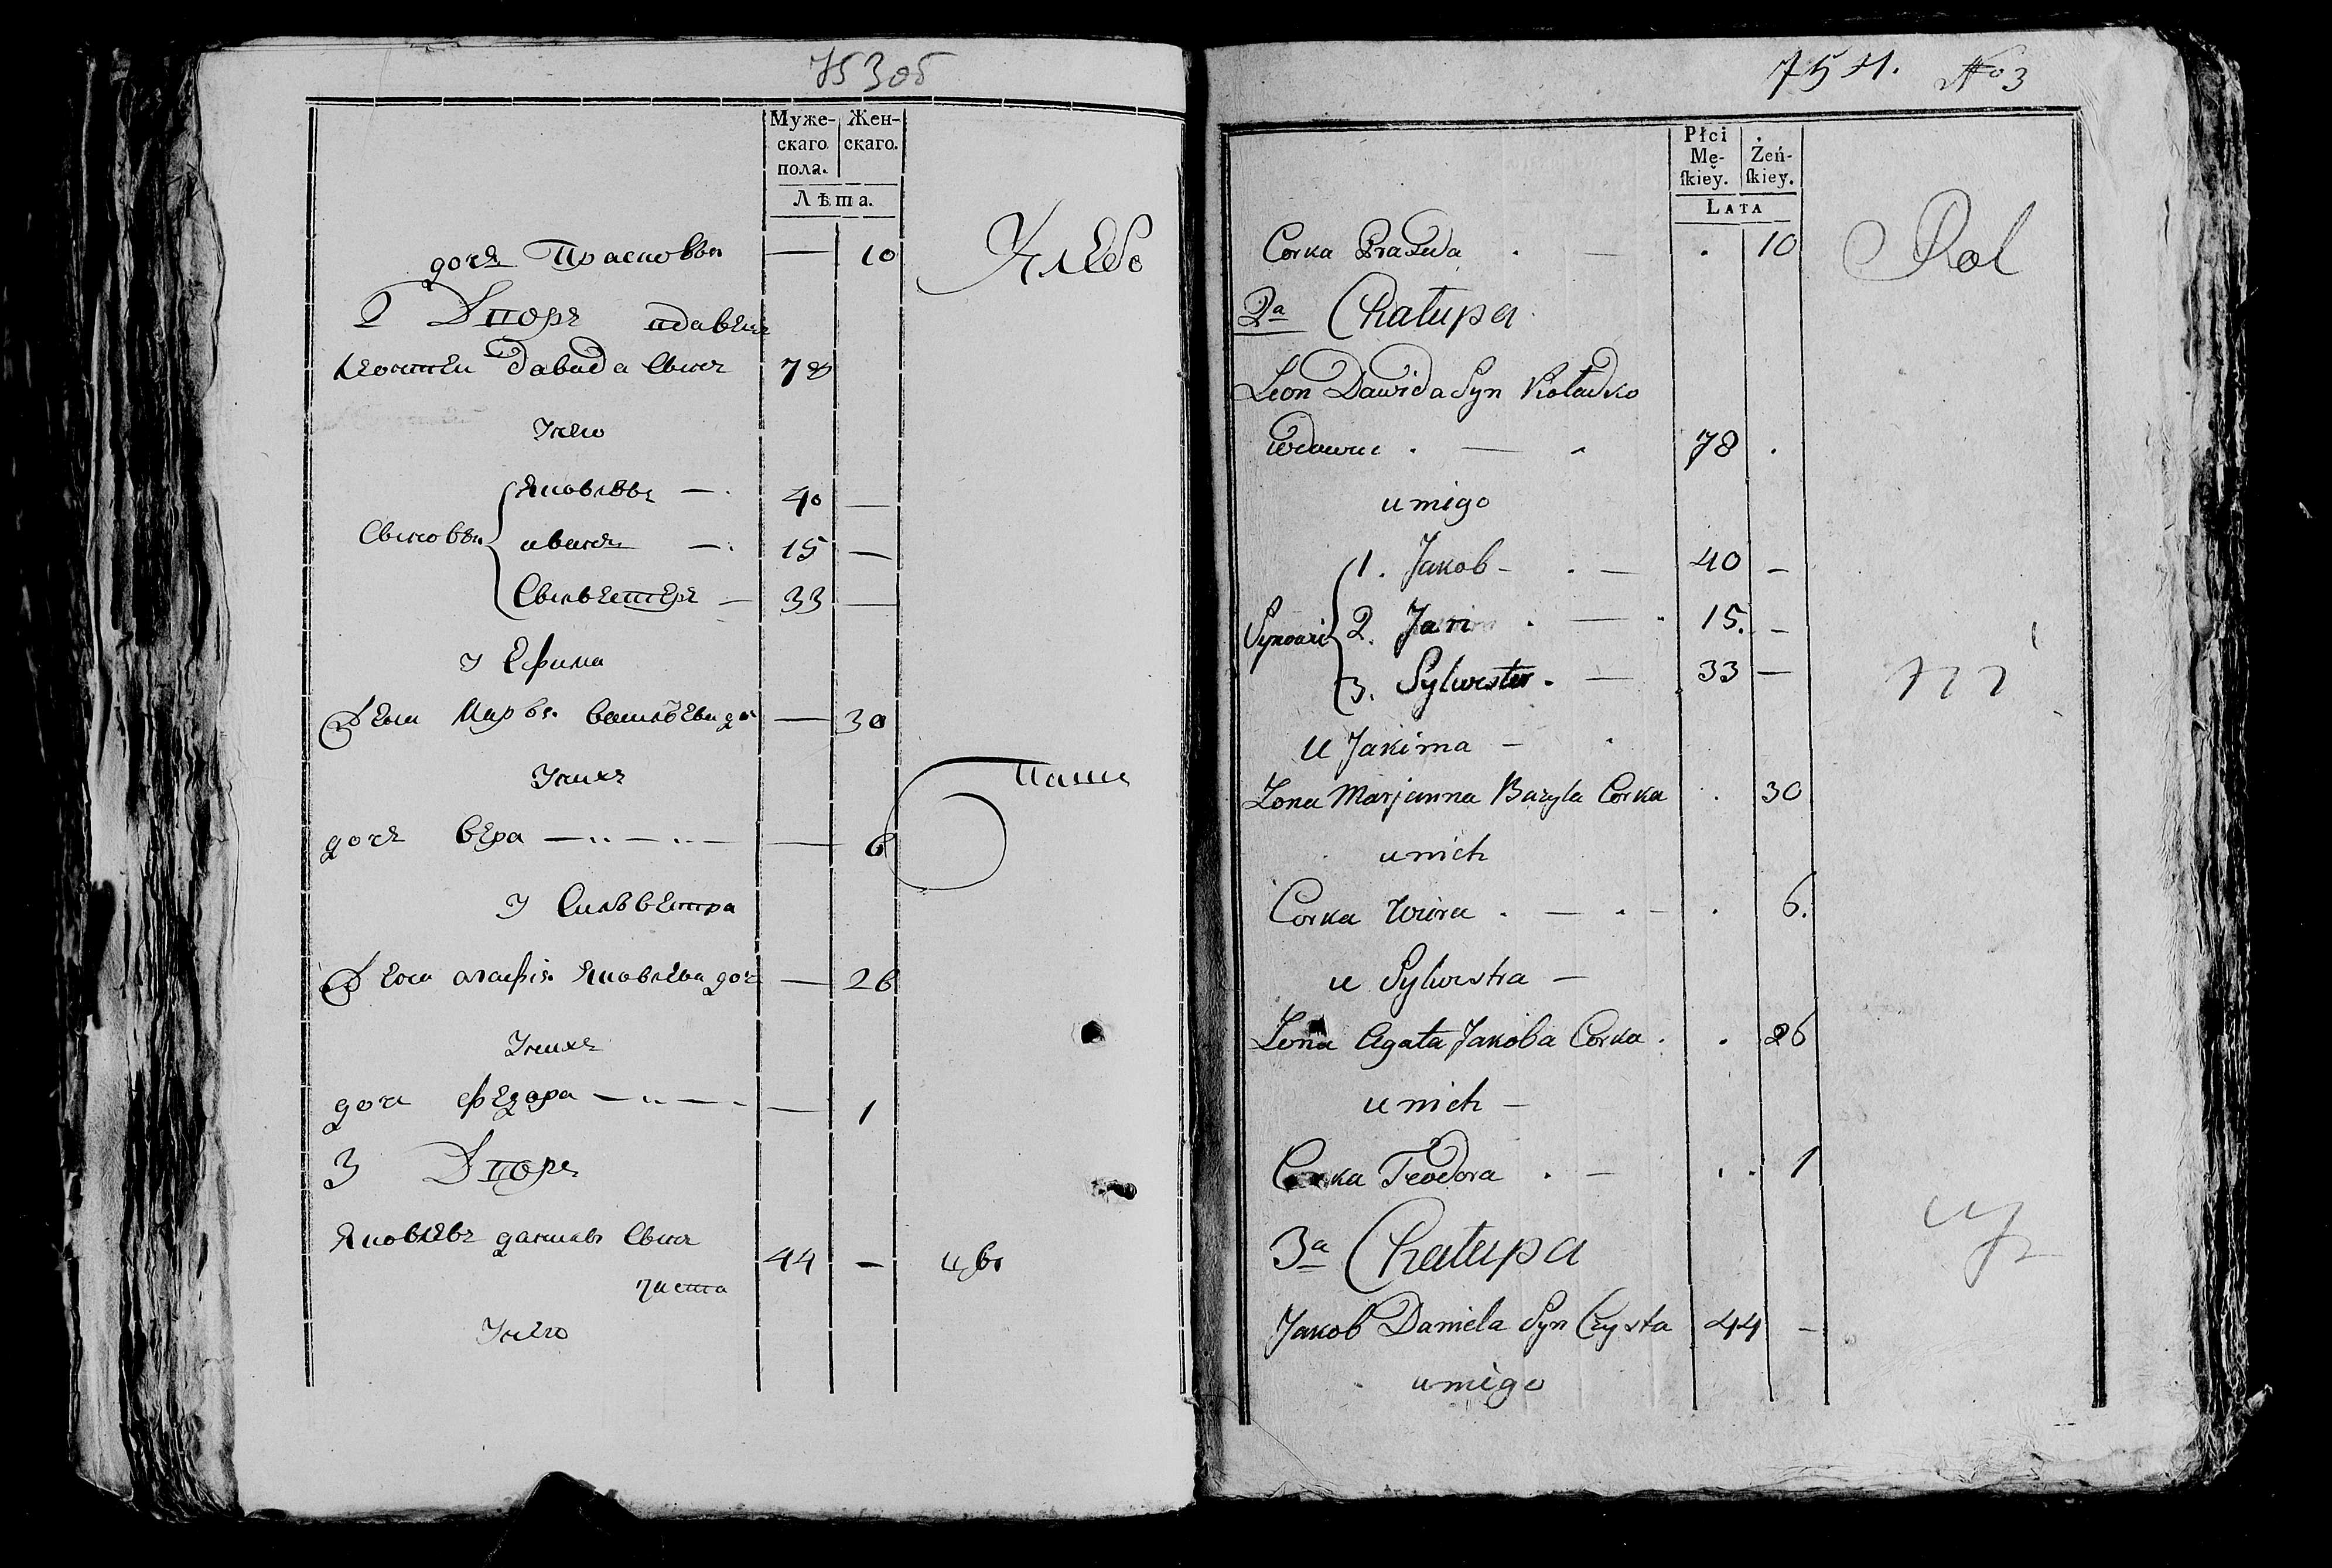 753 об
Муже-
скаго
пола.
Жен-
скаго.
Лѣта.
дочь Прасковья — 10
Хлѣбо
2 Дворъ вдавецъ
Леонтеи Давида Сынъ 78
Унего
Сыновья
Яковлвъ — 40 —
иванъ — 15 —
Сылвестеръ — 33 —
У Ефима
Жена Марья василева до — 30
Унихъ
паши
дочь вера — — 6
У Силвестра
Жена агафія Яковлева доч — 26
Унихъ
дочь федора — — 1
3 Дворъ
Яковлевъ данила Сынъ
чиста 44 —
Унего
754. No 3
Płci
Mę-
ſkiey.
Żeń-
ſkiey.
LATA
Corka Praxeda . — . 10
Rol
2a Chałupa
Leon Dawida Syn Koladko
wdowiec . — 78 .
u niego
Synowie
1. Jakob - . — 40 —
2. Jan . — . 15. —
3. Sylwester . — 33 —
ni
u Jakima —
Zona Marjanna Bazyla Corka . 30
u nich
Corka Wiera . — . — . 6.
u Sylwestra —
Zona Agata Jakoba Corka . . 26
u nich —
Corka Teodora . — . . 1
3a Chałupa
Jakob Daniela Syn Czysta 44 —
u niego